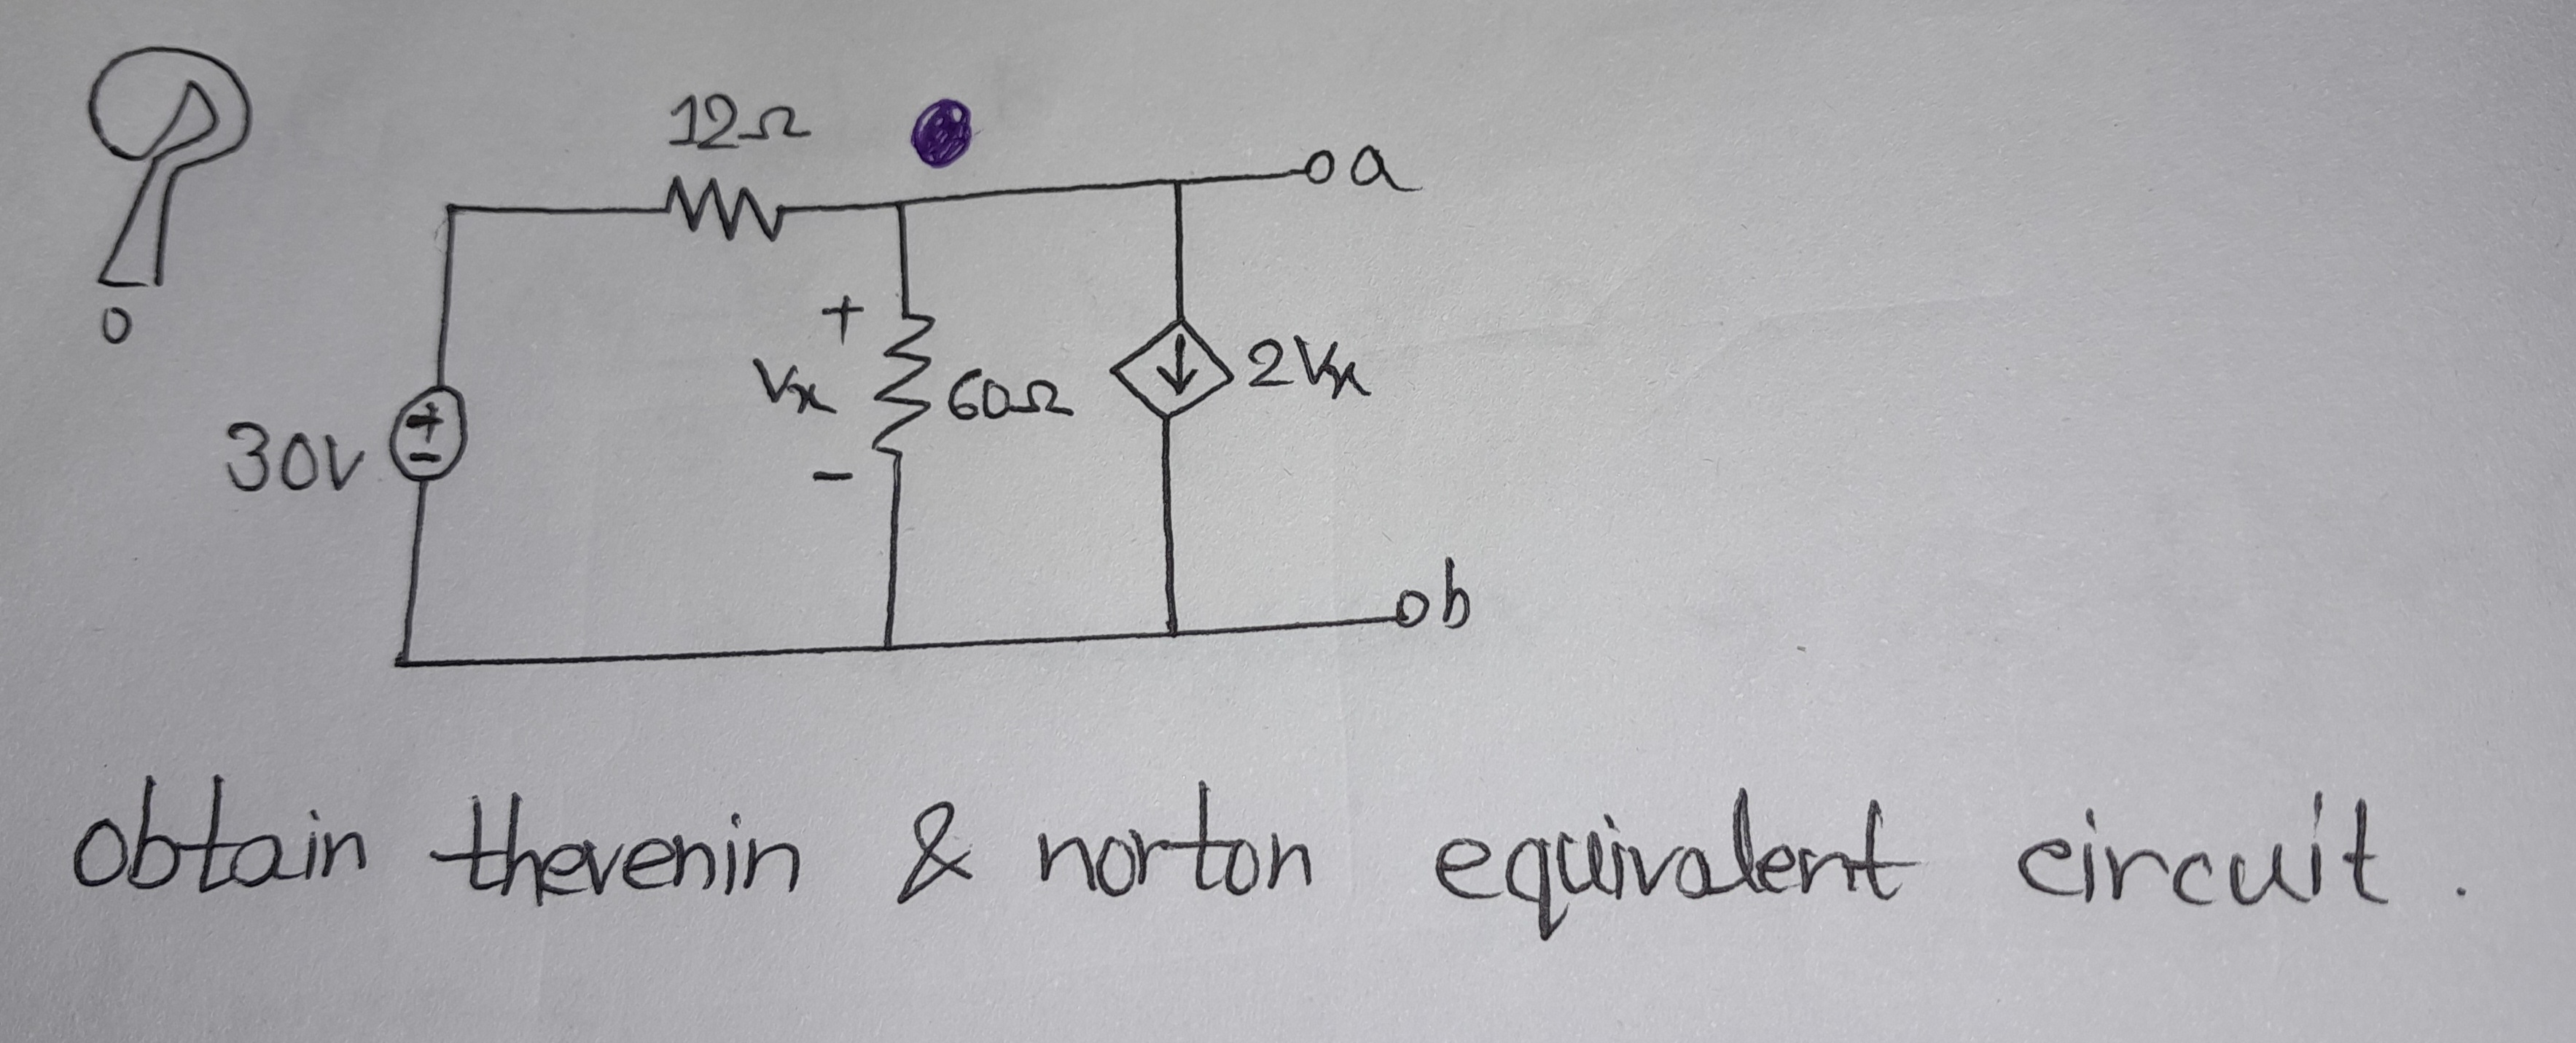 12Ω
a
+
Vx
60Ω
2Vx
30V
+
-
-
b
obtain thevenin & norton equivalent circuit.